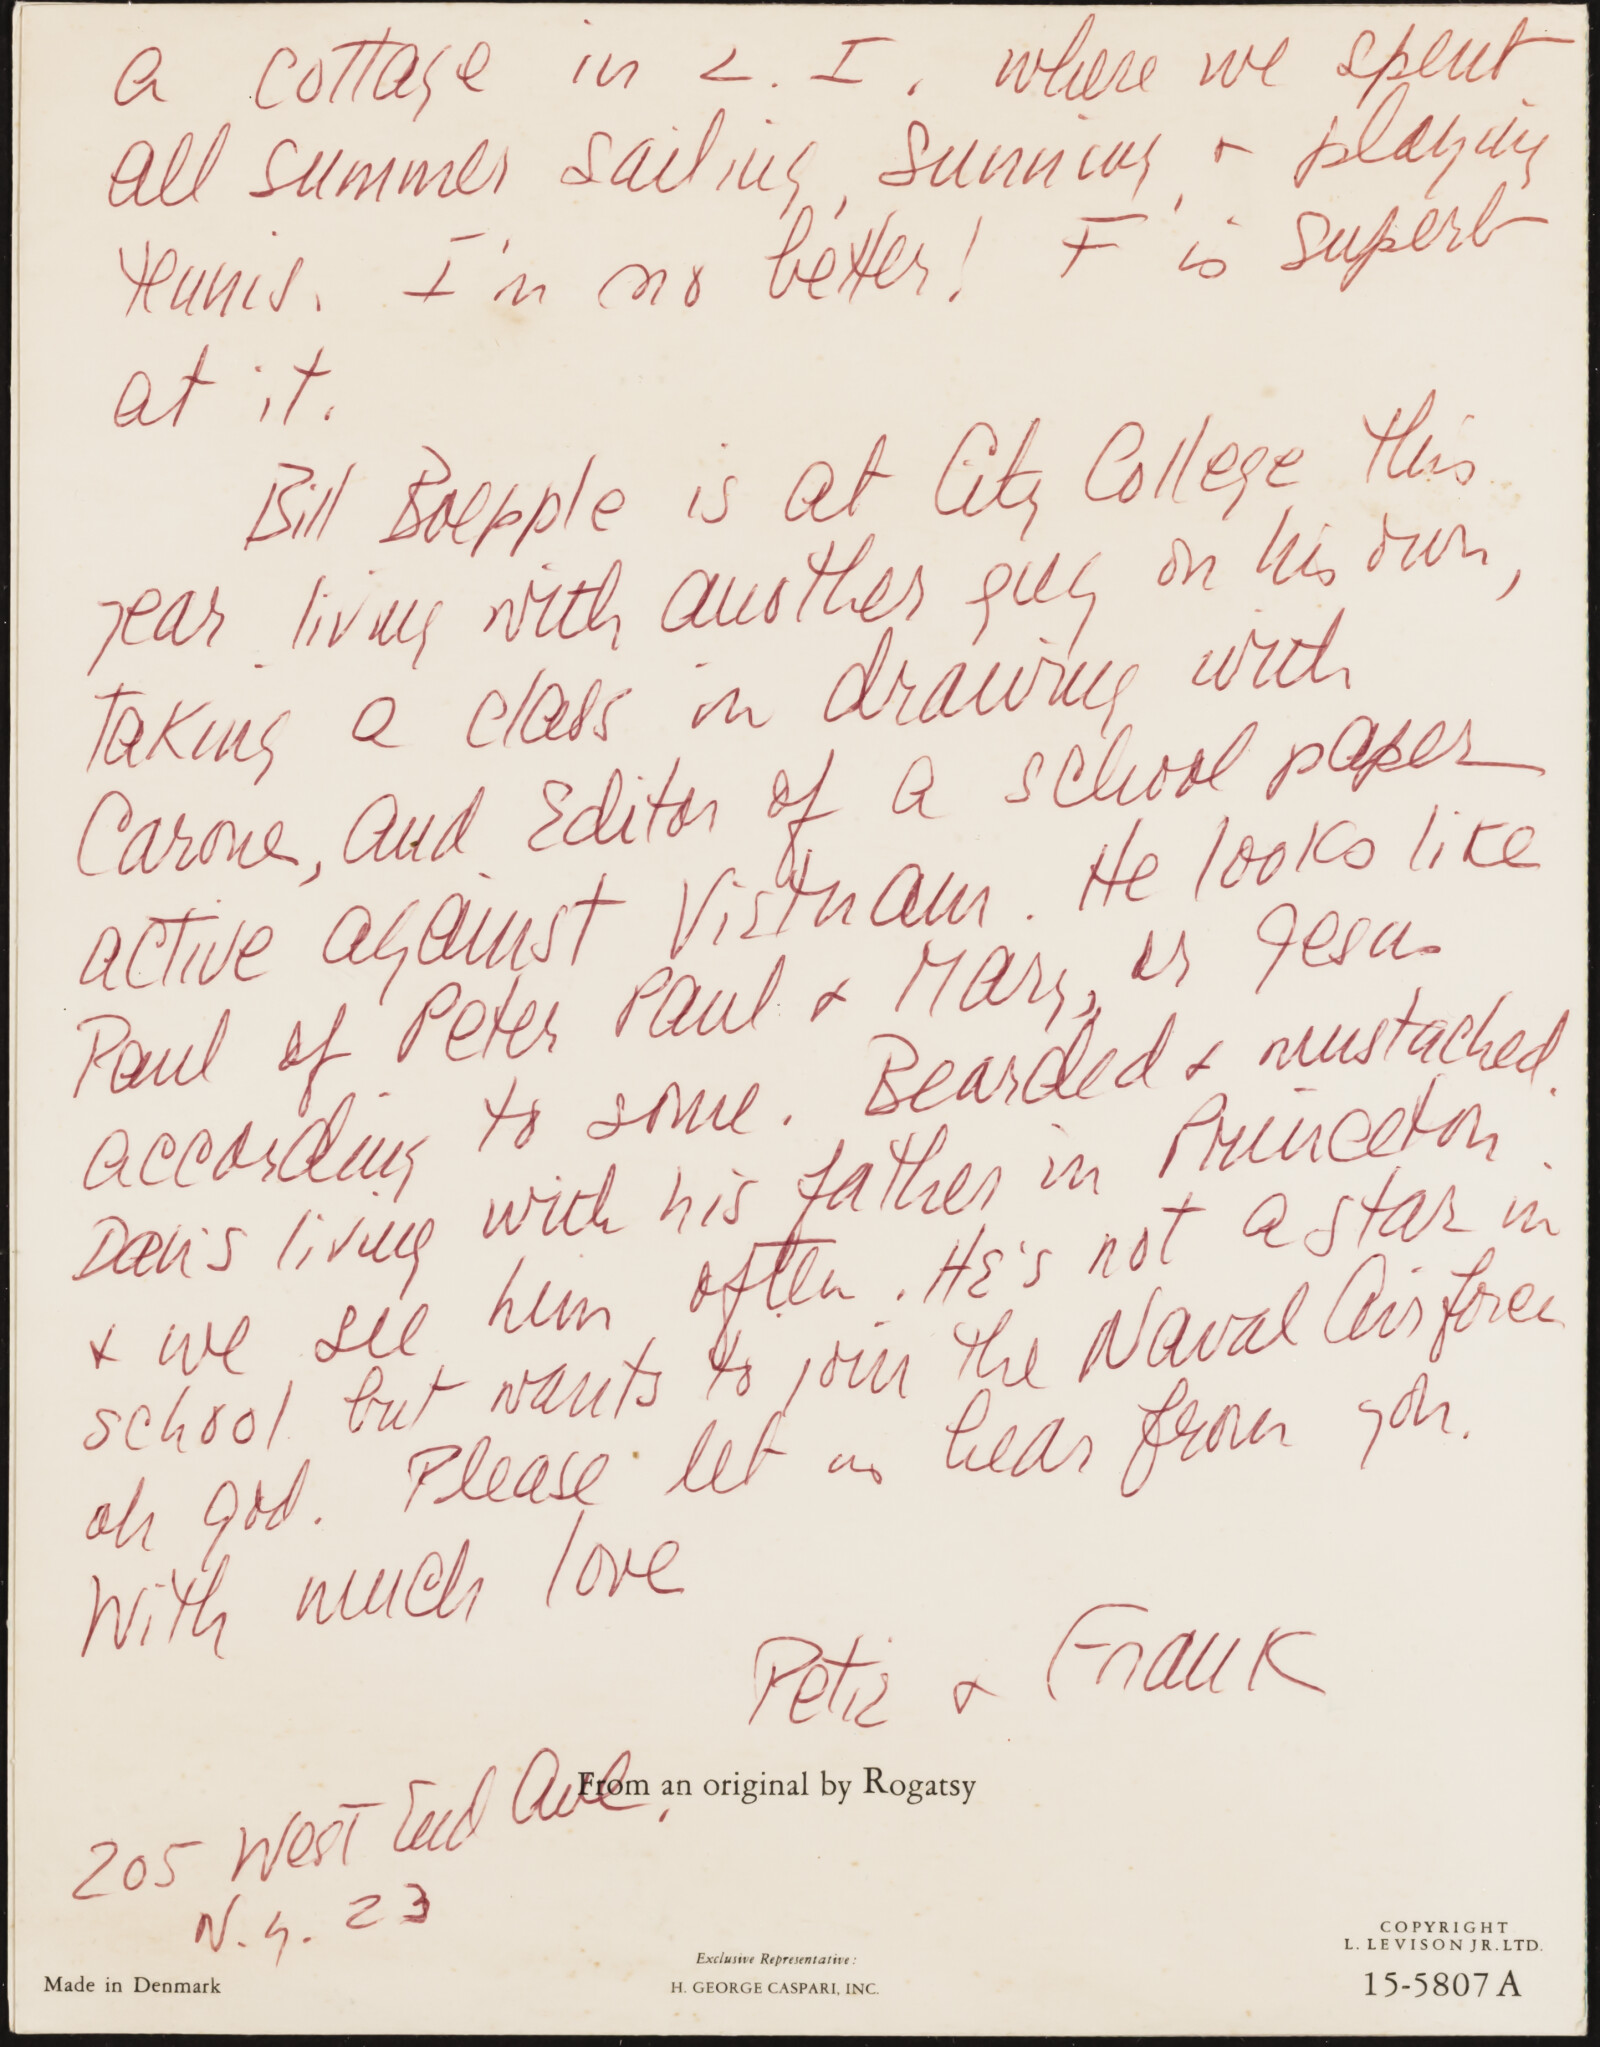 a cottage in L. I. where we spent
all summer sailing, sunning, + playing
tennis. I'm no better! F is superb
at it.
Bill Boepple is at City College this
year living with another guy on his own,
taking a class in drawing with
Carone, and Editor of a school paper
active against Vietnam. He looks like
Paul of Peter Paul + Mary, or Jesus
according to some. Bearded + mustached.
Davis living with his father in Princeton.
+ we see him often. He's not a star in
school but wants to join the Naval Air force
oh god. Please let us hear from you.
With much love
Petie + Frank
From an original by Rogatsy
205 West End Ave.
N.Y. 23
COPYRIGHT
L. LEVISON JR. LTD.
Exclusive Representative:
Made in Denmark
H. GEORGE CASPARI, INC.
15-5807 A